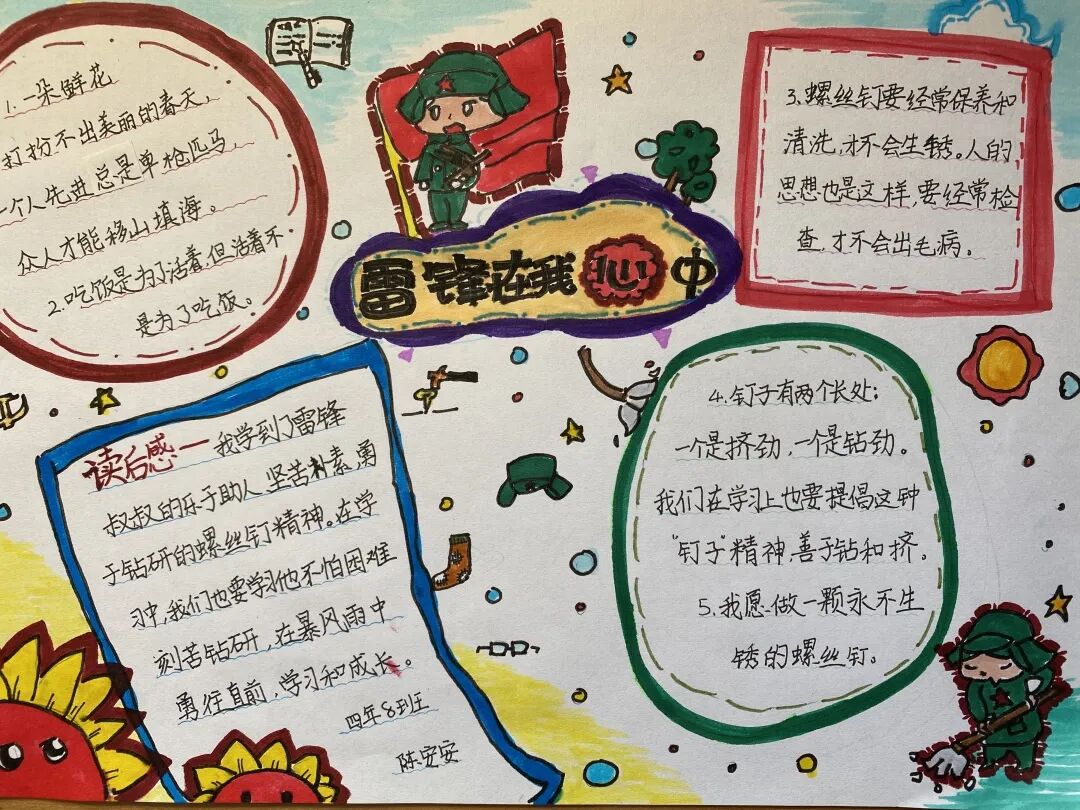 雷锋在我心中
1.一朵鲜花
打扮不出美丽的春天,
一个人先进总是单枪匹马,
众人才能移山填海。
2.吃饭是为了活着,但活着不
是为了吃饭。
3.螺丝钉要经常保养和
清洗,才不会生锈。人的
思想也是这样,要经常检
查,才不会出毛病。
读后感一我学到了雷锋
叔叔的乐于助人,坚苦朴素,勇
于钻研的螺丝钉精神。在学
习中,我们也要学习他不怕困难
刻苦钻研,在暴风雨中
勇往直前,学习和成长。
四年8班
陈安安
4.钉子有两个长处:
一个是挤劲,一个是钻劲。
我们在学习上也要提倡这钟
"钉子"精神,善于钻和挤。
5.我愿做一颗永不生
锈的螺丝钉。